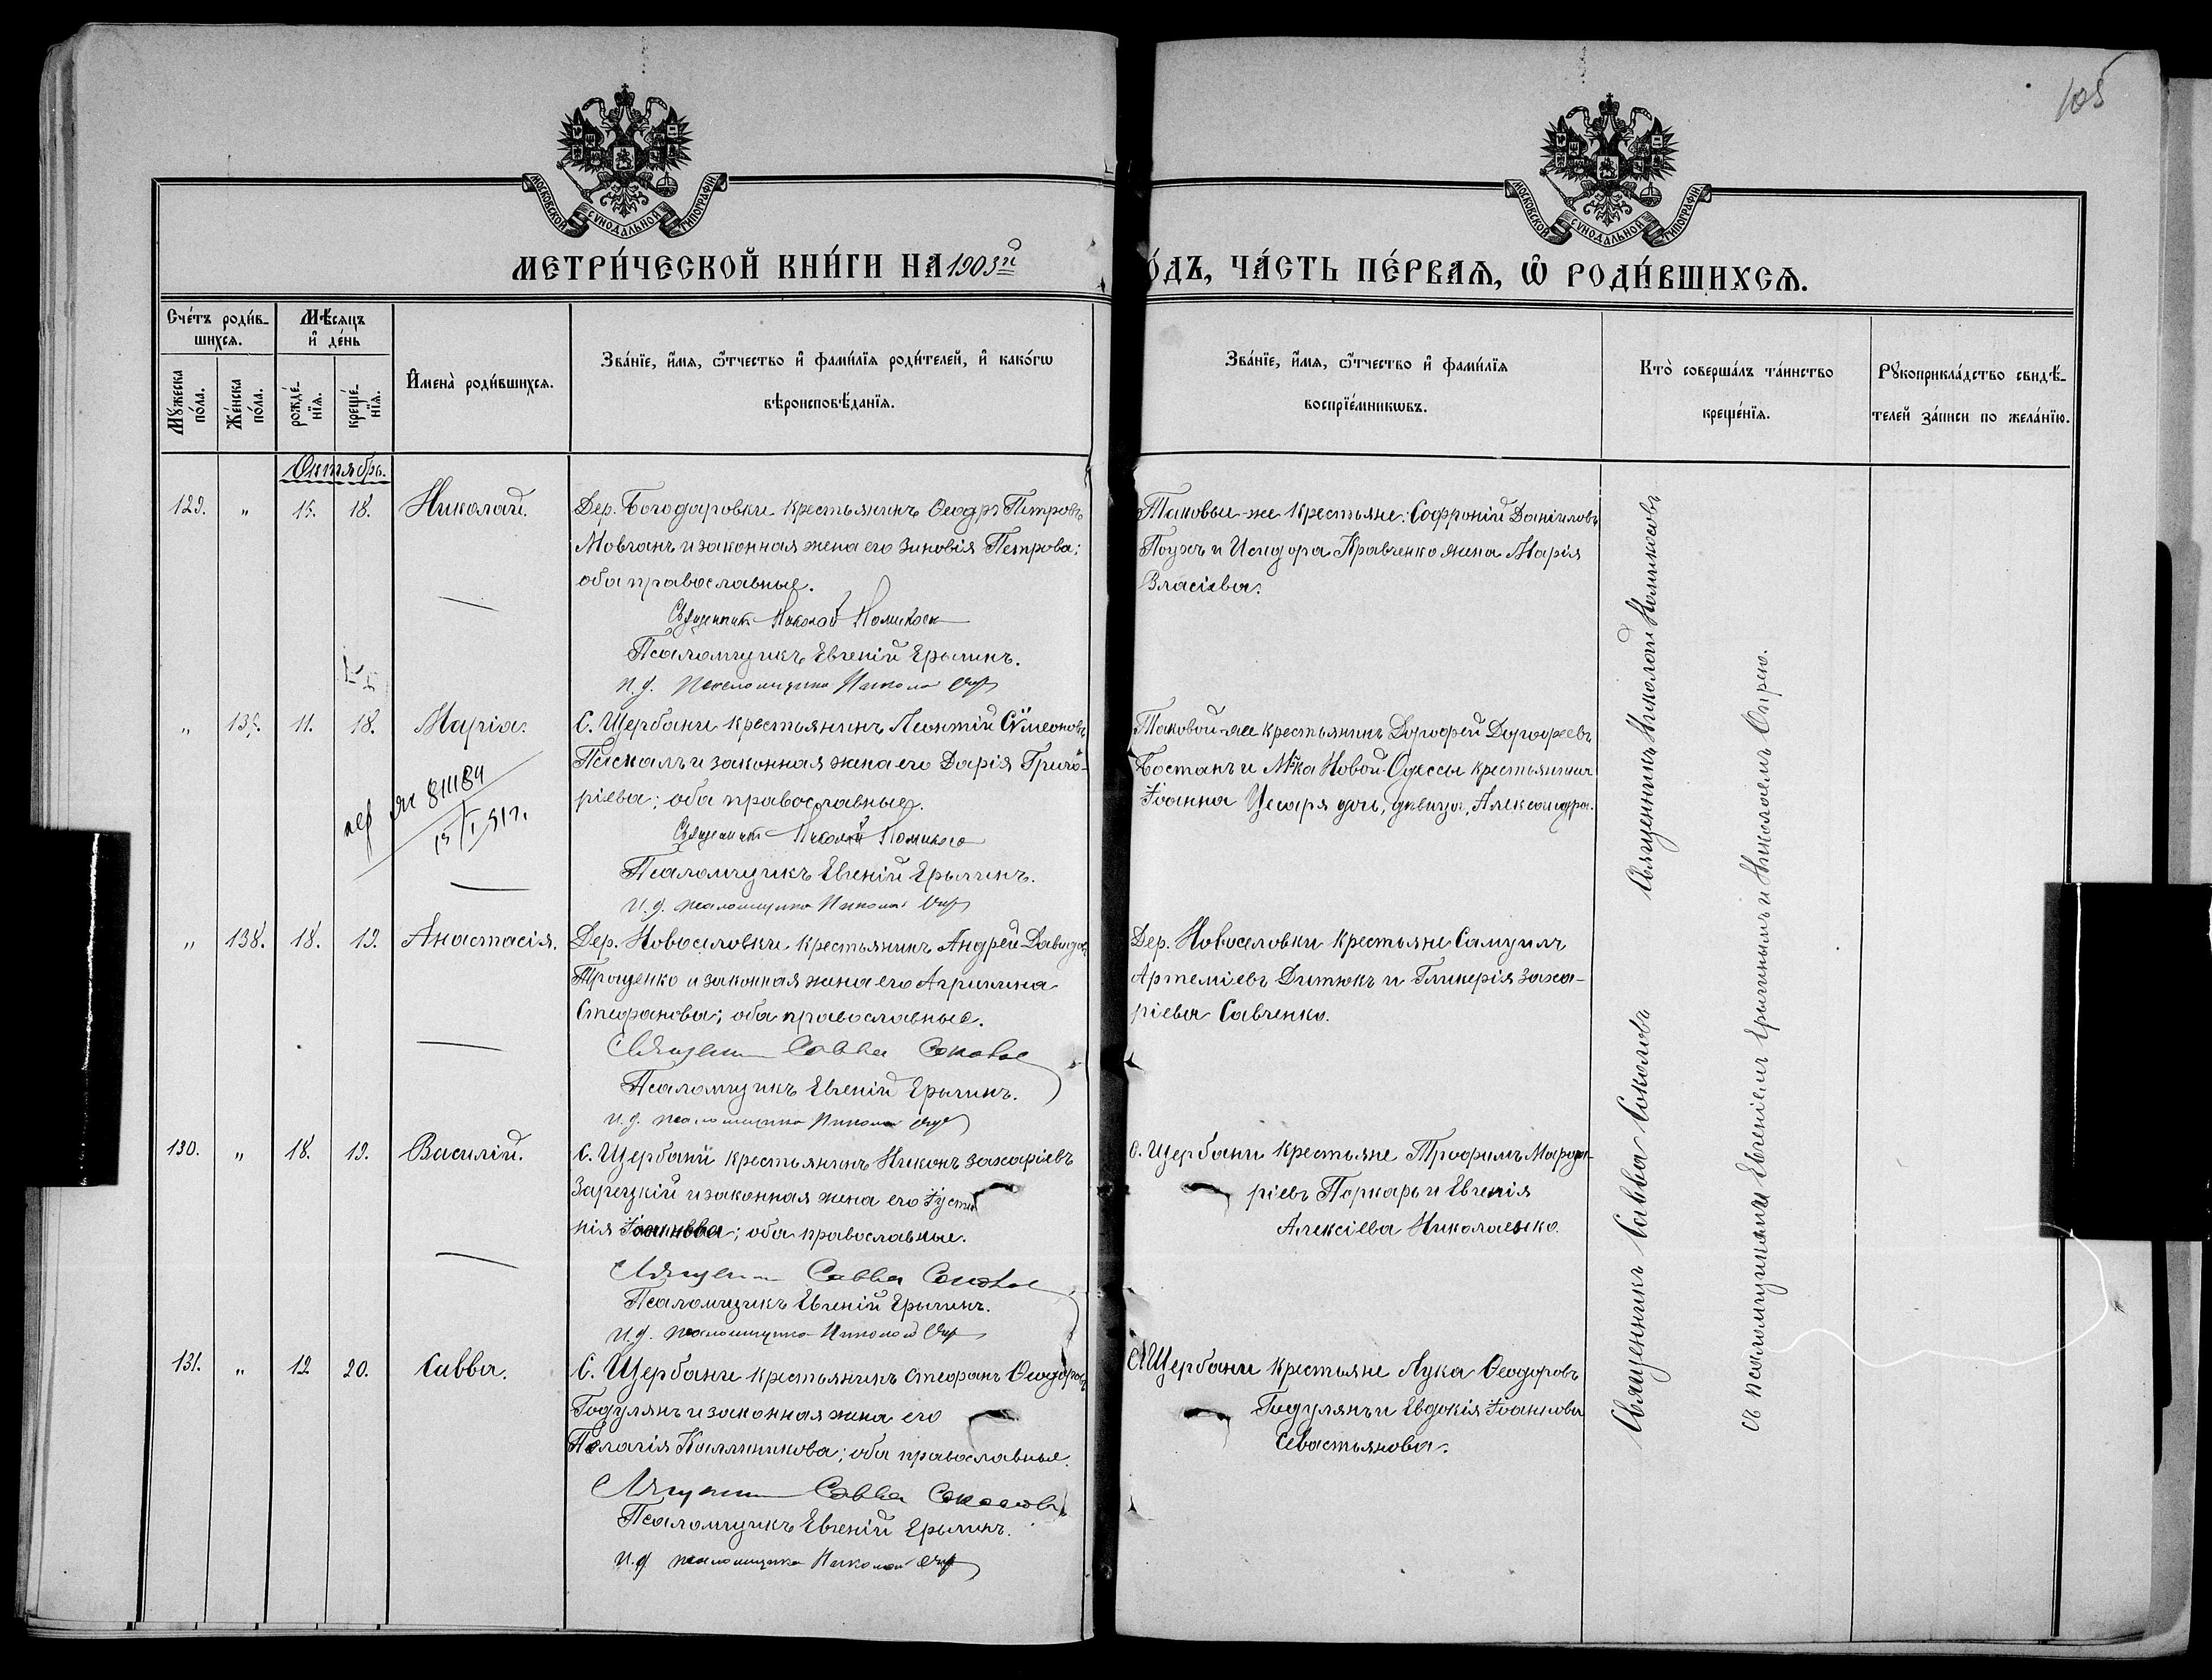 105
МОСКОВСКОЙ СѴНОДАЛЬНОЙ ТИПОГРАФІИ.
МОСКОВСКОЙ СѴНОДАЛЬНОЙ ТИПОГРАФІИ.
МЕТРИ́ЧЕСКОЙ КНИ́ГИ НА 1903й
О́ДЪ, ЧА́СТЬ ПЕ́РВАѦ, Ѡ РОДИ́ВШИХСѦ.
Счéтъ роди́в-
шихсѧ.
Мꙋ́жеска
по́ла.
Же́нска
по́ла.
Мѣ́сѧцъ
и҆ де́нь
рожде́-
нїѧ.
креще́-
нїѧ.
И҆мена̀ роди́вшихсѧ.
Зва́нїе, и҆́мѧ, ѻ҆́тчество и҆ фами́лїѧ роди́телей, и҆ како́гѡ
вѣроисповѣ́данїѧ.
Зва́нїе, и҆́мѧ, ѻ҆́тчество и҆ фами́лїѧ
воспрїе́мникѡвъ.
Кто̀ соверша́лъ та́инство
креще́нїѧ.
Рꙋкоприкла́дство свидѣ́-
телей за́писи по жела́нїю.
Октябрь.
129. " 15. 18. Николай.
Дер. Богодаровки крестьянинъ Ѳеодръ Петровъ
Мовчанъ и законная жена его Зиновія Петрова;
оба православные.
Священникъ Николай
Псаломщикъ Евгеній Ерылинъ.
и. д. псаломщика Николай
Таковые-же крестьяне: Софроній Даніиловъ
и Исидора Кравченко жена Марія
Власіева.
" 137. 11. 18. Марія.
С. Щербани крестьянинъ Леонтій Сѵмеоновъ
Паскалъ и законная жена его Дарія Григо-
ріева; оба православные.
Священникъ Николай
Псаломщикъ Евгеній Ерылинъ.
и. д. псаломщика Николай
811184
Таковой-же крестьянинъ Дорофей Дорофеевъ
Бостанъ и М-ка Новой-Одессы крестьянина
Іоанна Цесаря дочь, дѣвица, Александра.
" 138. 18. 19. Анастасія.
Дер. Новоселовки крестьянинъ Андрей Давидовъ
Троценко и законная жена его Агрипина
Стефанова; оба православные.
Священникъ Савва Соколовъ
Псаломщикъ Евгеній Ерылинъ.
и. д. псаломщика Николай
Дер. Новоселовки крестьяне Самуилъ
Артеміевъ Дитюкъ и Гликерія Заха-
ріева Савченко.
130. " 18. 19. Василій.
С. Щербани крестьянинъ Никонъ Захаріевъ
Зарецкій и законная жена его Іусти
нія Іоаннова; оба православные.
Священникъ Савва Соколовъ
Псаломщикъ Евгеній Ерылинъ.
и. д. псаломщика Николай
С. Щербани крестьяне Трофимъ
ріевъ Поркарь и Евгенія
Алексіева Николаенко.
131. " 12 20. Савва.
С. Щербани крестьянинъ Стефанъ Ѳеодоровъ
Годулянъ и законная жена его
Пелагія Каллиникова; оба православные.
Священникъ Савва Соколовъ
Псаломщикъ Евгеній Ерылинъ.
и. д. псаломщика Николай
С. Щербани крестьяне Лука Ѳеодоровъ
Годулянъ и Евдокія Іоаннова
Севастьянова.
Священникъ Николай
Священникъ Савва Соколовъ
съ псаломщиками Евгеніемъ Ерылинымъ и Николаемъ